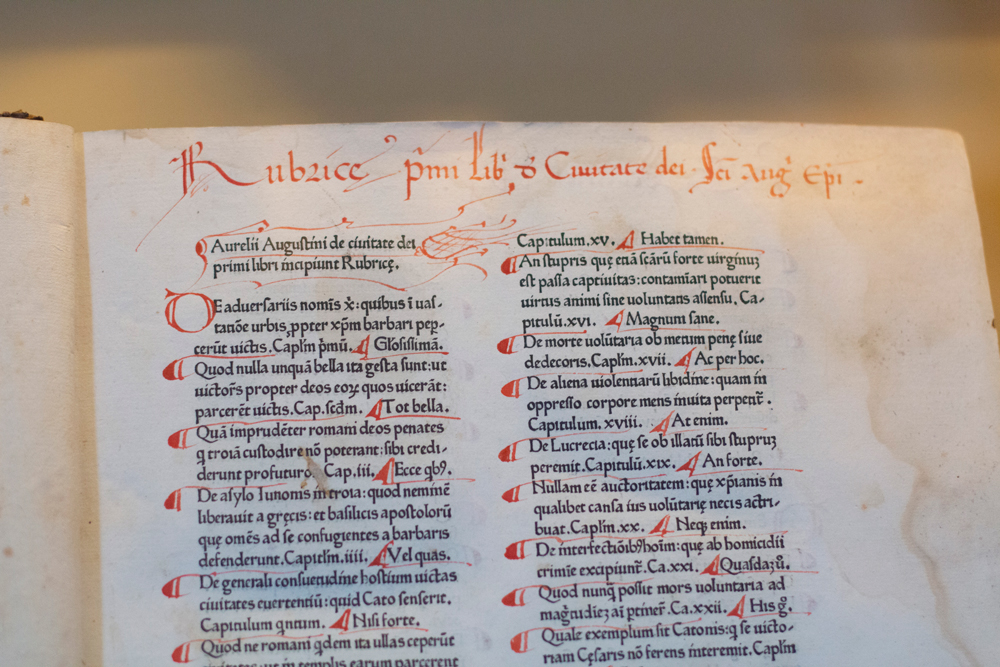 Rubrice p̄mi Lib' d̄ Ciuitate dei Sc̄i Aug' Ep̄i
Aurelii Augustini de ciuitate dei
primi libri incipiunt Rubricę.
DE aduersariis nomīs x̄: quibus ī uas-
tatiōe urbis ꝓpter xp̄m barbari pep-
cerūt uictis. Caplīm p̄mū. Glōsissimā.
Quod nulla unquā bella ita gesta sunt: ut
uictor̄s propter deos eoꝝ quos uicerāt:
parcerēt uictis. Cap. scd̄m. Tot bella.
Quā imprudēter romani deos penates
q troiā custodire nō poterant: sibi credi-
derunt profuturo. Cap. iii. Ecce qbꝰ.
De asylo Iunonis in troia: quod neminē
liberauit a gręcis: et basilicis apostolorū
quę omēs ad se confugientes a barbaris
defenderunt. Capitl̄m. iiii. Vel quas.
De generali consuetudine hostium uictas
ciuitates euertentiū: quid Cato senserit.
Capitulum quītum. Nisi forte.
Quod ne romani qdem ita ullas ceperūt
ciuitates: ut in templis earum parcerent
Capitulum. xv. Habet tamen.
An stupris quę etiā scāꝝ forte uirginuꝫ
est passa captiuitas: contamīari potuerit
uirtus animi sine uoluntatis assensu. Ca-
pitulū. xvi. Magnum sane.
De morte uolūtaria ob metum penę siue
dedecoris. Caplīm. xvii. Ac per hoc.
De aliena uiolentiarū libidine: quam in
oppresso corpore mens inuita perpetit̄.
Capitulum. xviii. At enim.
De Lucrecia: quę se ob illatū sibi stupruꝫ
peremit. Capitulū. xix. An forte.
Nullam eē auctoritatem: quę xp̄ianis in
qualibet causa ius uolūtarię necis actri-
buat. Caplīm. xx. Neqꝫ enim.
De interfectiōibꝰ hoīm: que ab homicidii
crimīe excipiunt̄. Ca. xxi. Quasdaꝫ ū.
Quod nunq̄ possit mors uoluntaria ad
mag̊tudīeꝫ aī ptiner̄. Ca. xxii. His g̊.
Quale exemplum sit Catonis: q se uicto-
riam Cęsaris nō ferens interemit. Caplīm